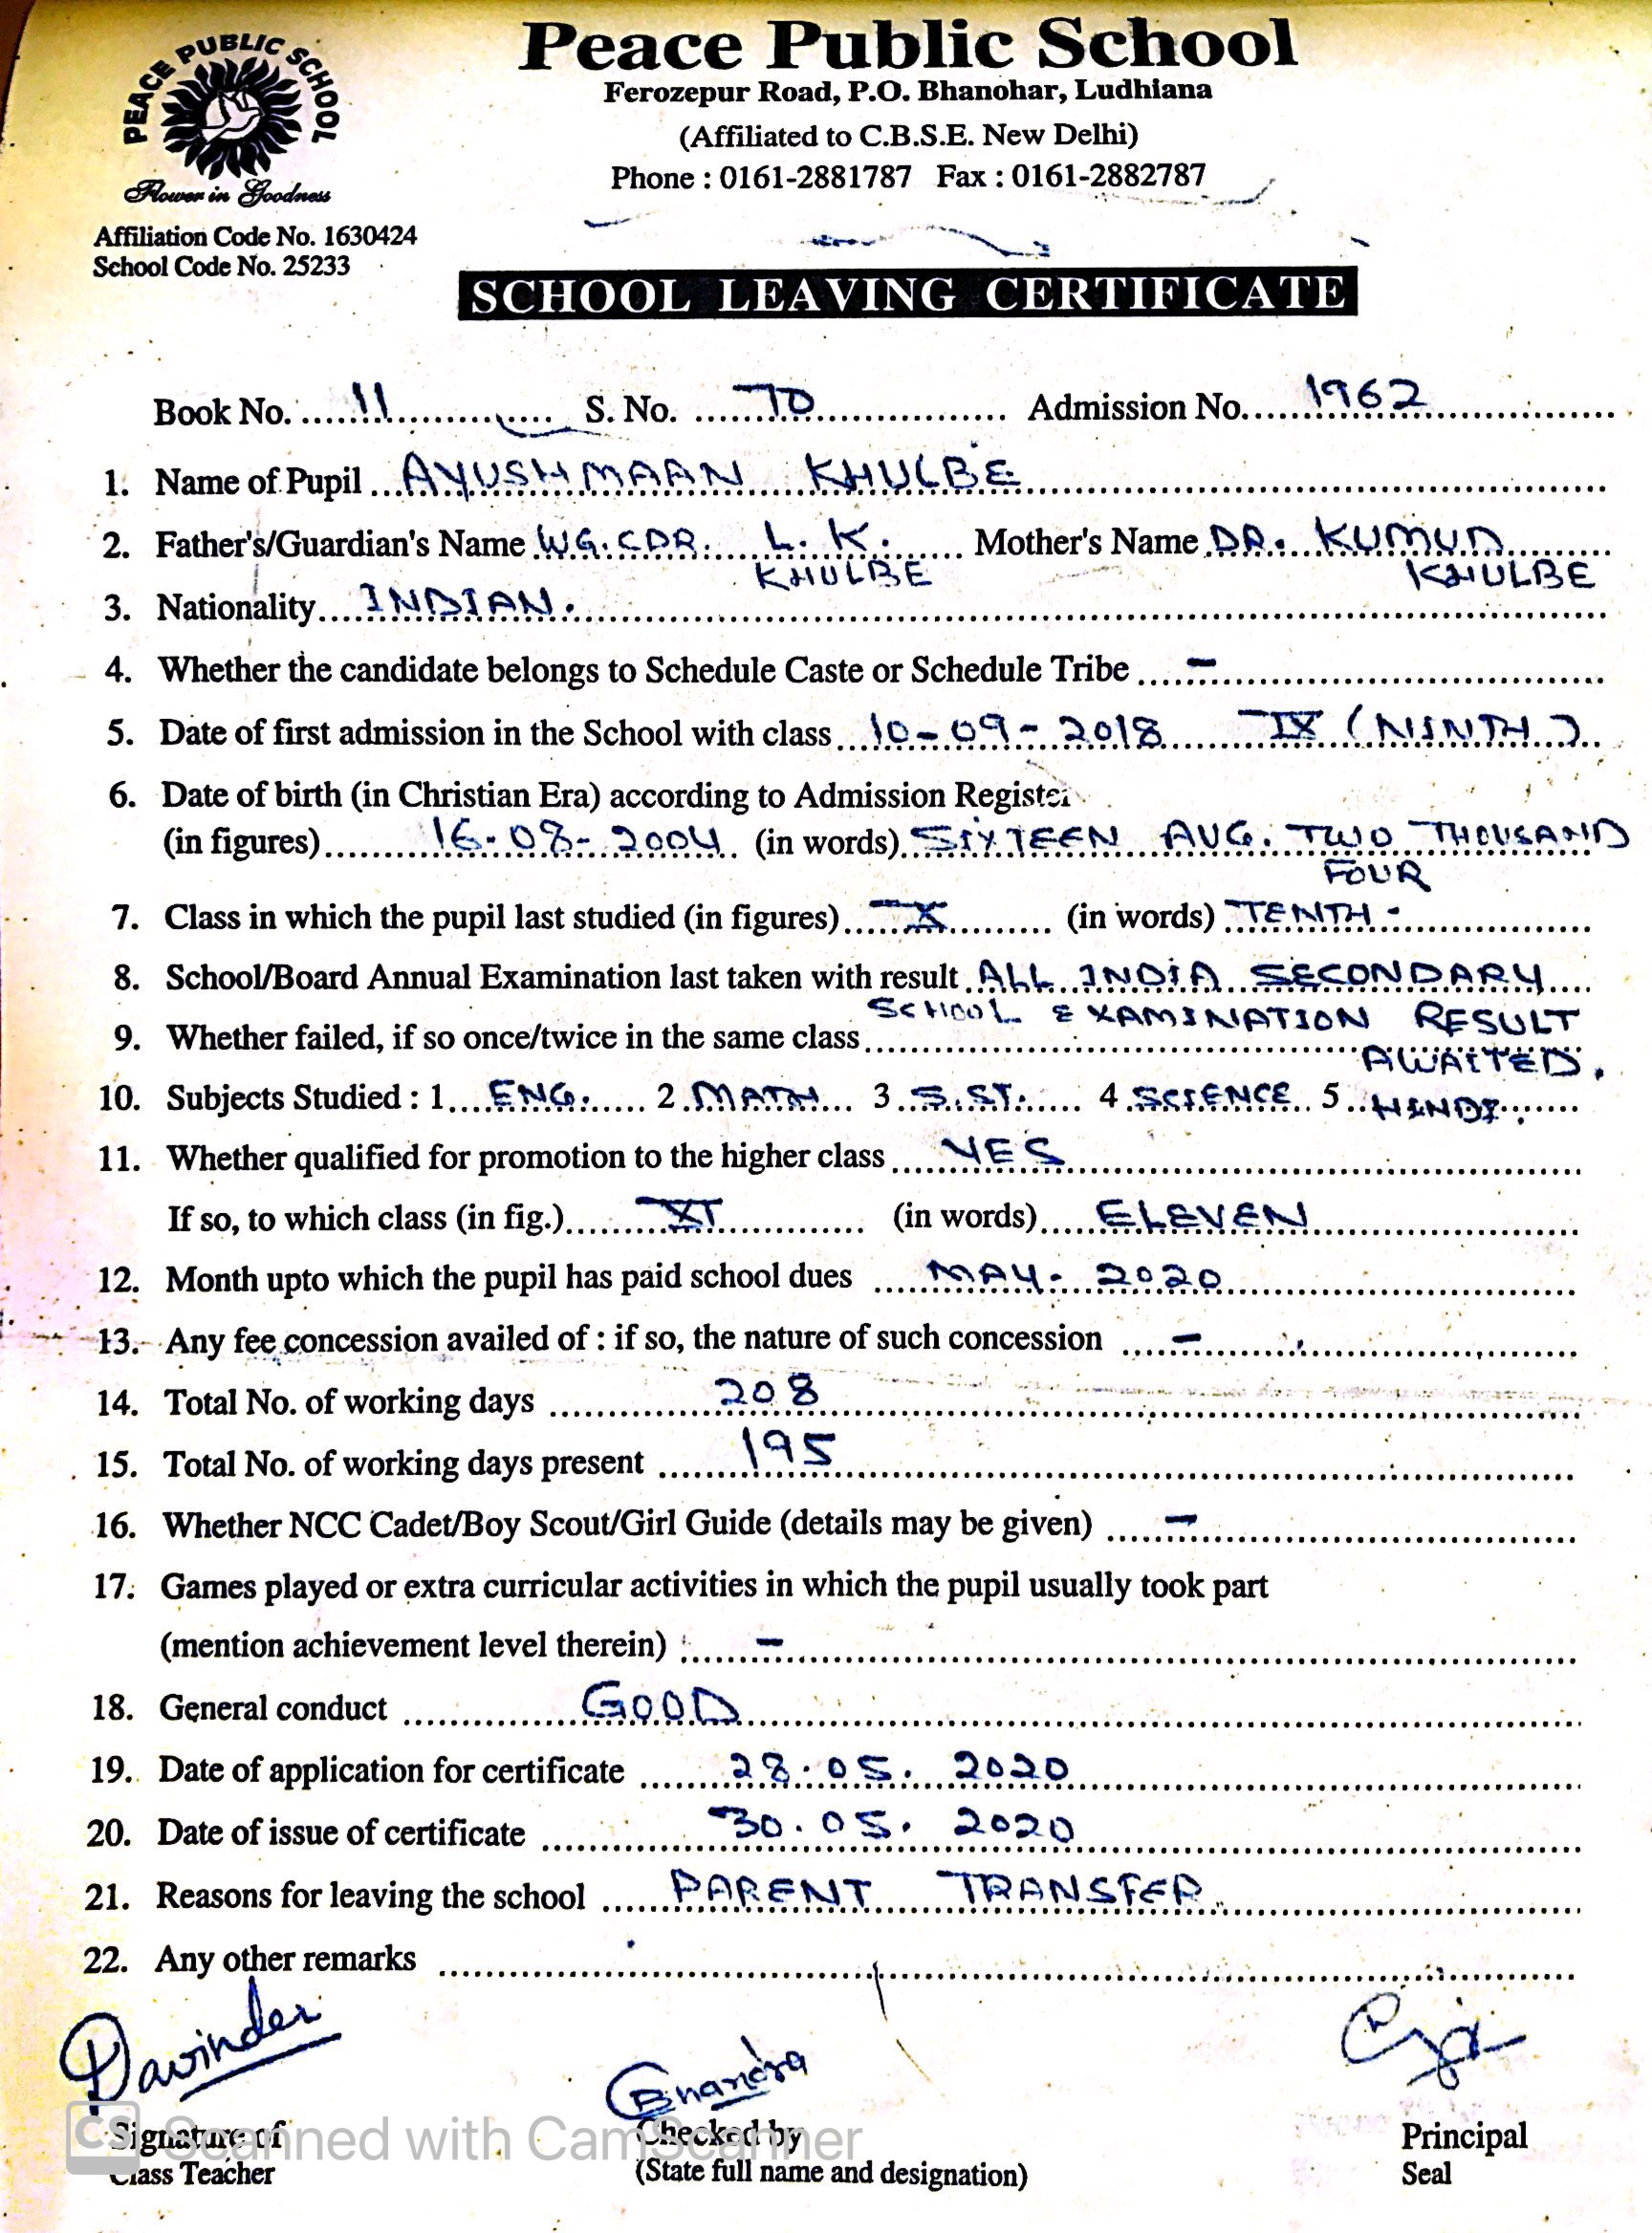 PEACE PUBLIC SCHOOL
Flower in Goodness
Affiliation Code No. 1630424
School Code No. 25233
Peace Public School
Ferozepur Road, P.O. Bhanohar, Ludhiana
(Affiliated to C.B.S.E. New Delhi)
Phone : 0161-2881787 Fax : 0161-2882787
SCHOOL LEAVING CERTIFICATE
Book No. 11 S. No. 70 Admission No. 1962
1. Name of Pupil AYUSHMAAN KHULBE
2. Father's/Guardian's Name WG.CDR. L. K. Mother's Name DR. KUMUD
KHULBE KHULBE
3. Nationality INDIAN.
4. Whether the candidate belongs to Schedule Caste or Schedule Tribe -
5. Date of first admission in the School with class 10-09-2018 IX (NINTH)
6. Date of birth (in Christian Era) according to Admission Register
(in figures) 16-08-2004 (in words) SIXTEEN AUG. TWO THOUSAND
FOUR
7. Class in which the pupil last studied (in figures) X (in words) TENTH -
8. School/Board Annual Examination last taken with result ALL INDIA SECONDARY
SCHOOL EXAMINATION RESULT
9. Whether failed, if so once/twice in the same class
AWAITED.
10. Subjects Studied : 1 ENG. 2 MATH 3 S.ST. 4 SCIENCE 5 HINDI.
11. Whether qualified for promotion to the higher class YES
If so, to which class (in fig.) XI (in words) ELEVEN
12. Month upto which the pupil has paid school dues MAY- 2020
13. Any fee concession availed of : if so, the nature of such concession -
14. Total No. of working days 208
15. Total No. of working days present 195
16. Whether NCC Cadet/Boy Scout/Girl Guide (details may be given) -
17. Games played or extra curricular activities in which the pupil usually took part
(mention achievement level therein) -
18. General conduct GOOD
19. Date of application for certificate 28.05.2020
20. Date of issue of certificate 30.05.2020
21. Reasons for leaving the school PARENT TRANSFER
22. Any other remarks
Davinder
Bhandra
Signature of
Class Teacher
Checked by
(State full name and designation)
Principal
Seal
CS Scanned with CamScanner